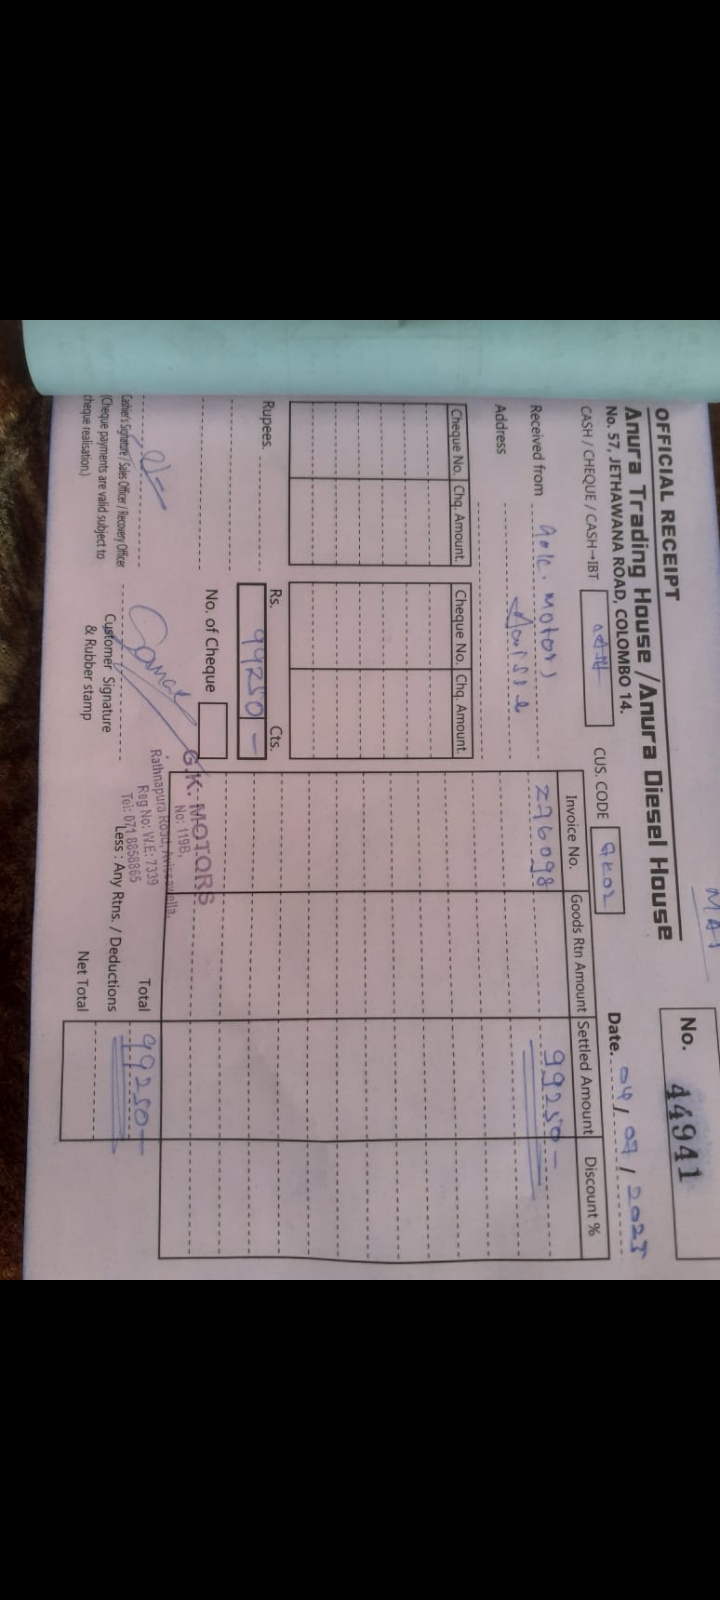 MAI
OFFICIAL RECEIPT
No. 44941
Anura Trading House / Anura Diesel House
No. 57, JETHAWANA ROAD, COLOMBO 14.
CASH / CHEQUE / CASH→IBT CASH
CUS. CODE GK02
Date. 04 / 07 / 2025
Received from G.K. Motors
Address
Cheque No. Chq. Amount. Cheque No. Chq. Amount.
Invoice No. Goods Rtn Amount Settled Amount Discount %
Z96098 99250 -
Rupees.
Rs. Cts.
99250 -
No. of Cheque
Cashier's Signature / Sales Officer / Recovery Officer
(Cheque payments are valid subject to
cheque realisation.)
Customer Signature
& Rubber stamp
G.K. MOTORS
No: 119B,
Rathnapura Road, Avissawella.
Reg No: W.E: 7339
Tel: 071 8858865
Total 99250 -
Less : Any Rtns. / Deductions
Net Total